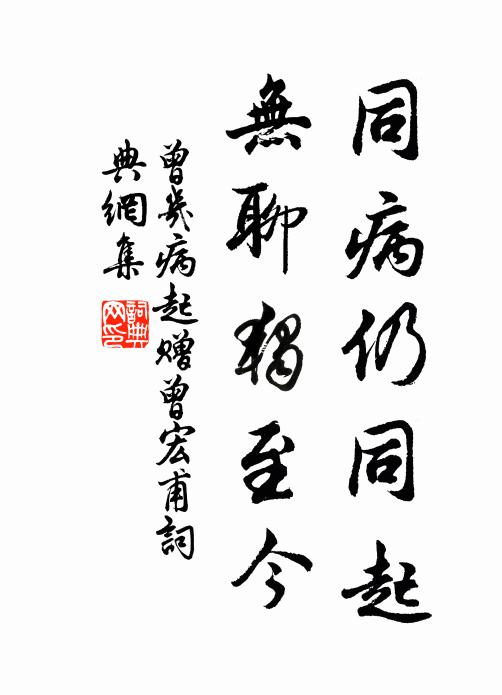 同病仍同起
無聊獨至今
曾幾病起贈曾宏甫詞
典網集
詞典
网印